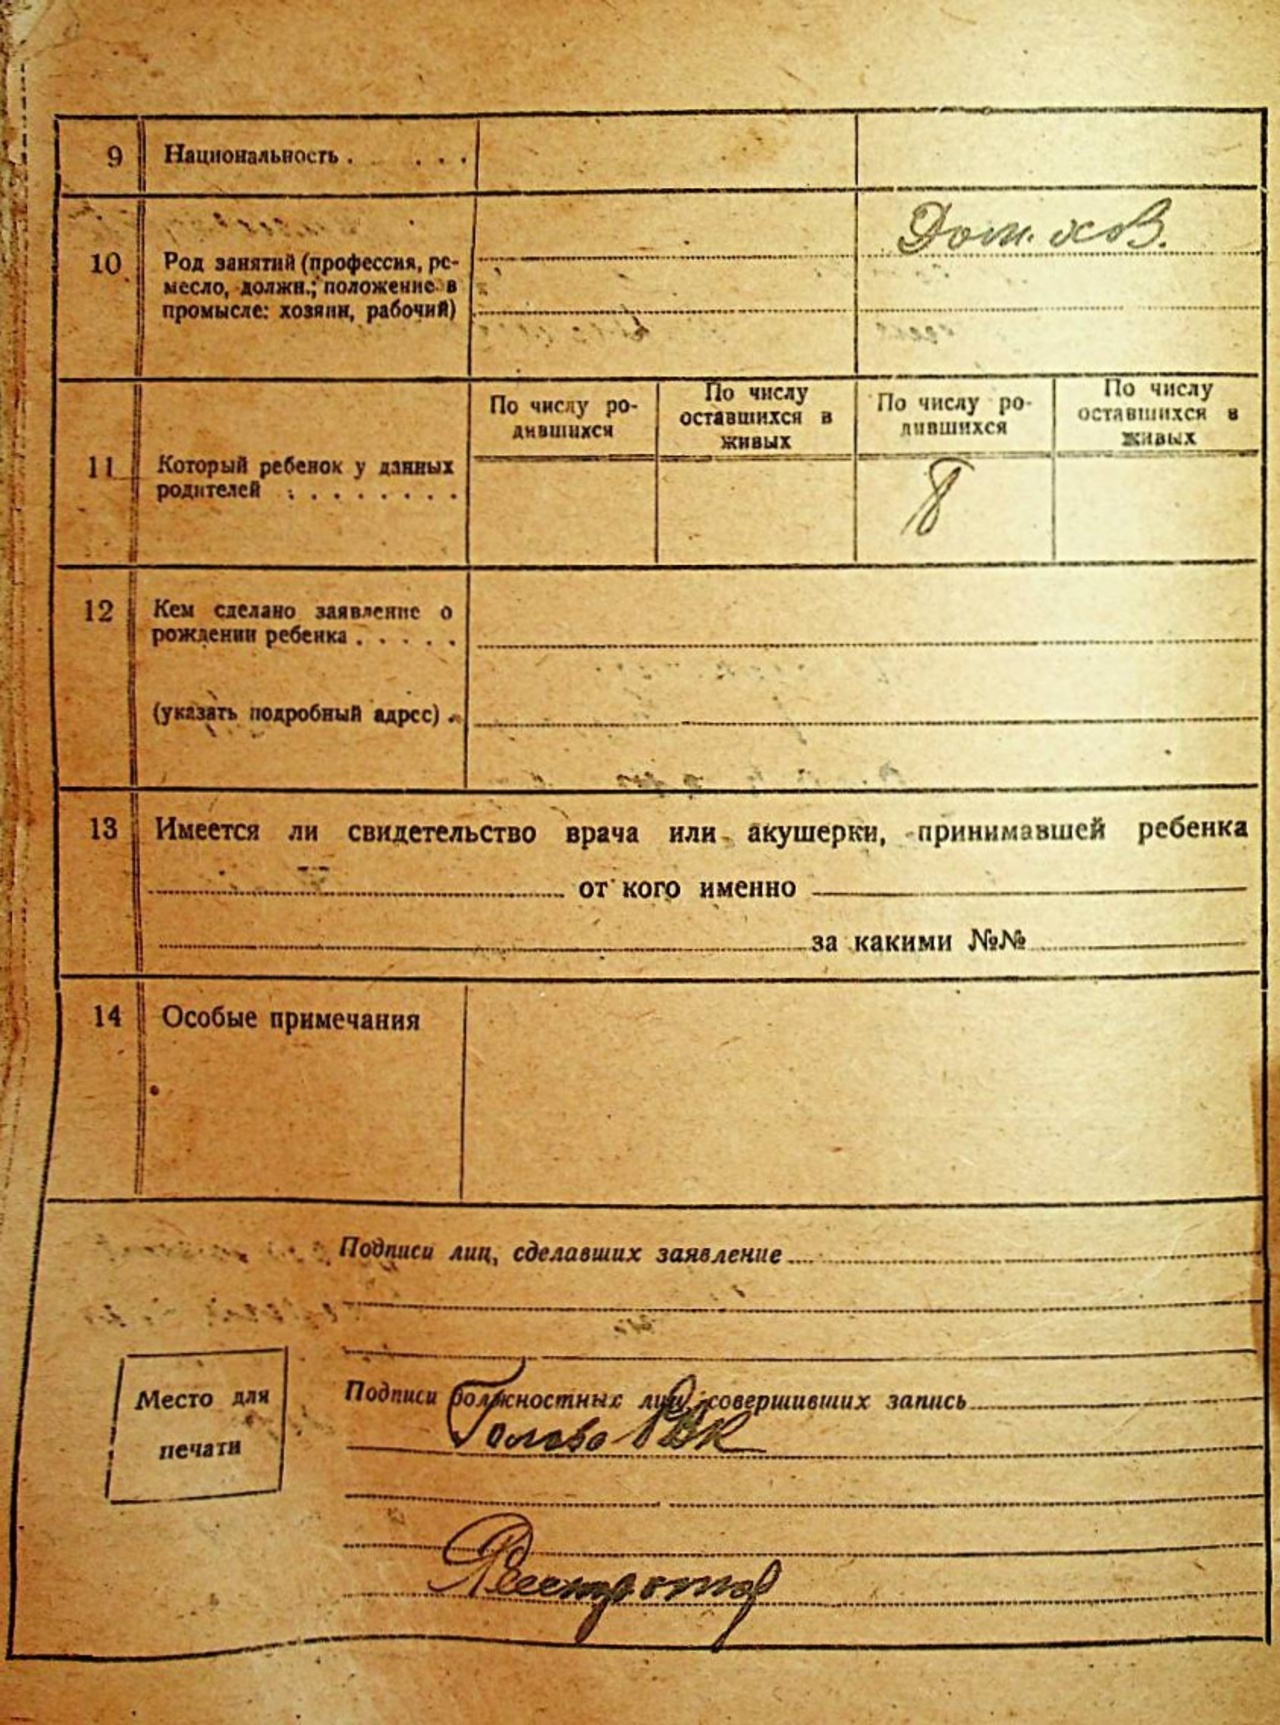 9 Национальность . . . .
Дом. хоз.
10 Род занятий (профессия, ре-
месло, должн.; положение в
промысле: хозяин, рабочий)
По числу ро-
дившихся
По числу
оставшихся в
живых
По числу ро-
дившихся
По числу
оставшихся в
живых
11 Который ребенок у данных
родителей . . . . . . . .
8
12 Кем сделано заявление о
рождении ребенка . . . . .
(указать подробный адрес) .
13 Имеется ли свидетельство врача или акушерки, принимавшей ребенка
от кого именно
за какими №№
14 Особые примечания
Подписи лиц, сделавших заявление
Место для
печати
Подписи должностных лиц, совершивших запись
Голова
Реєстратор